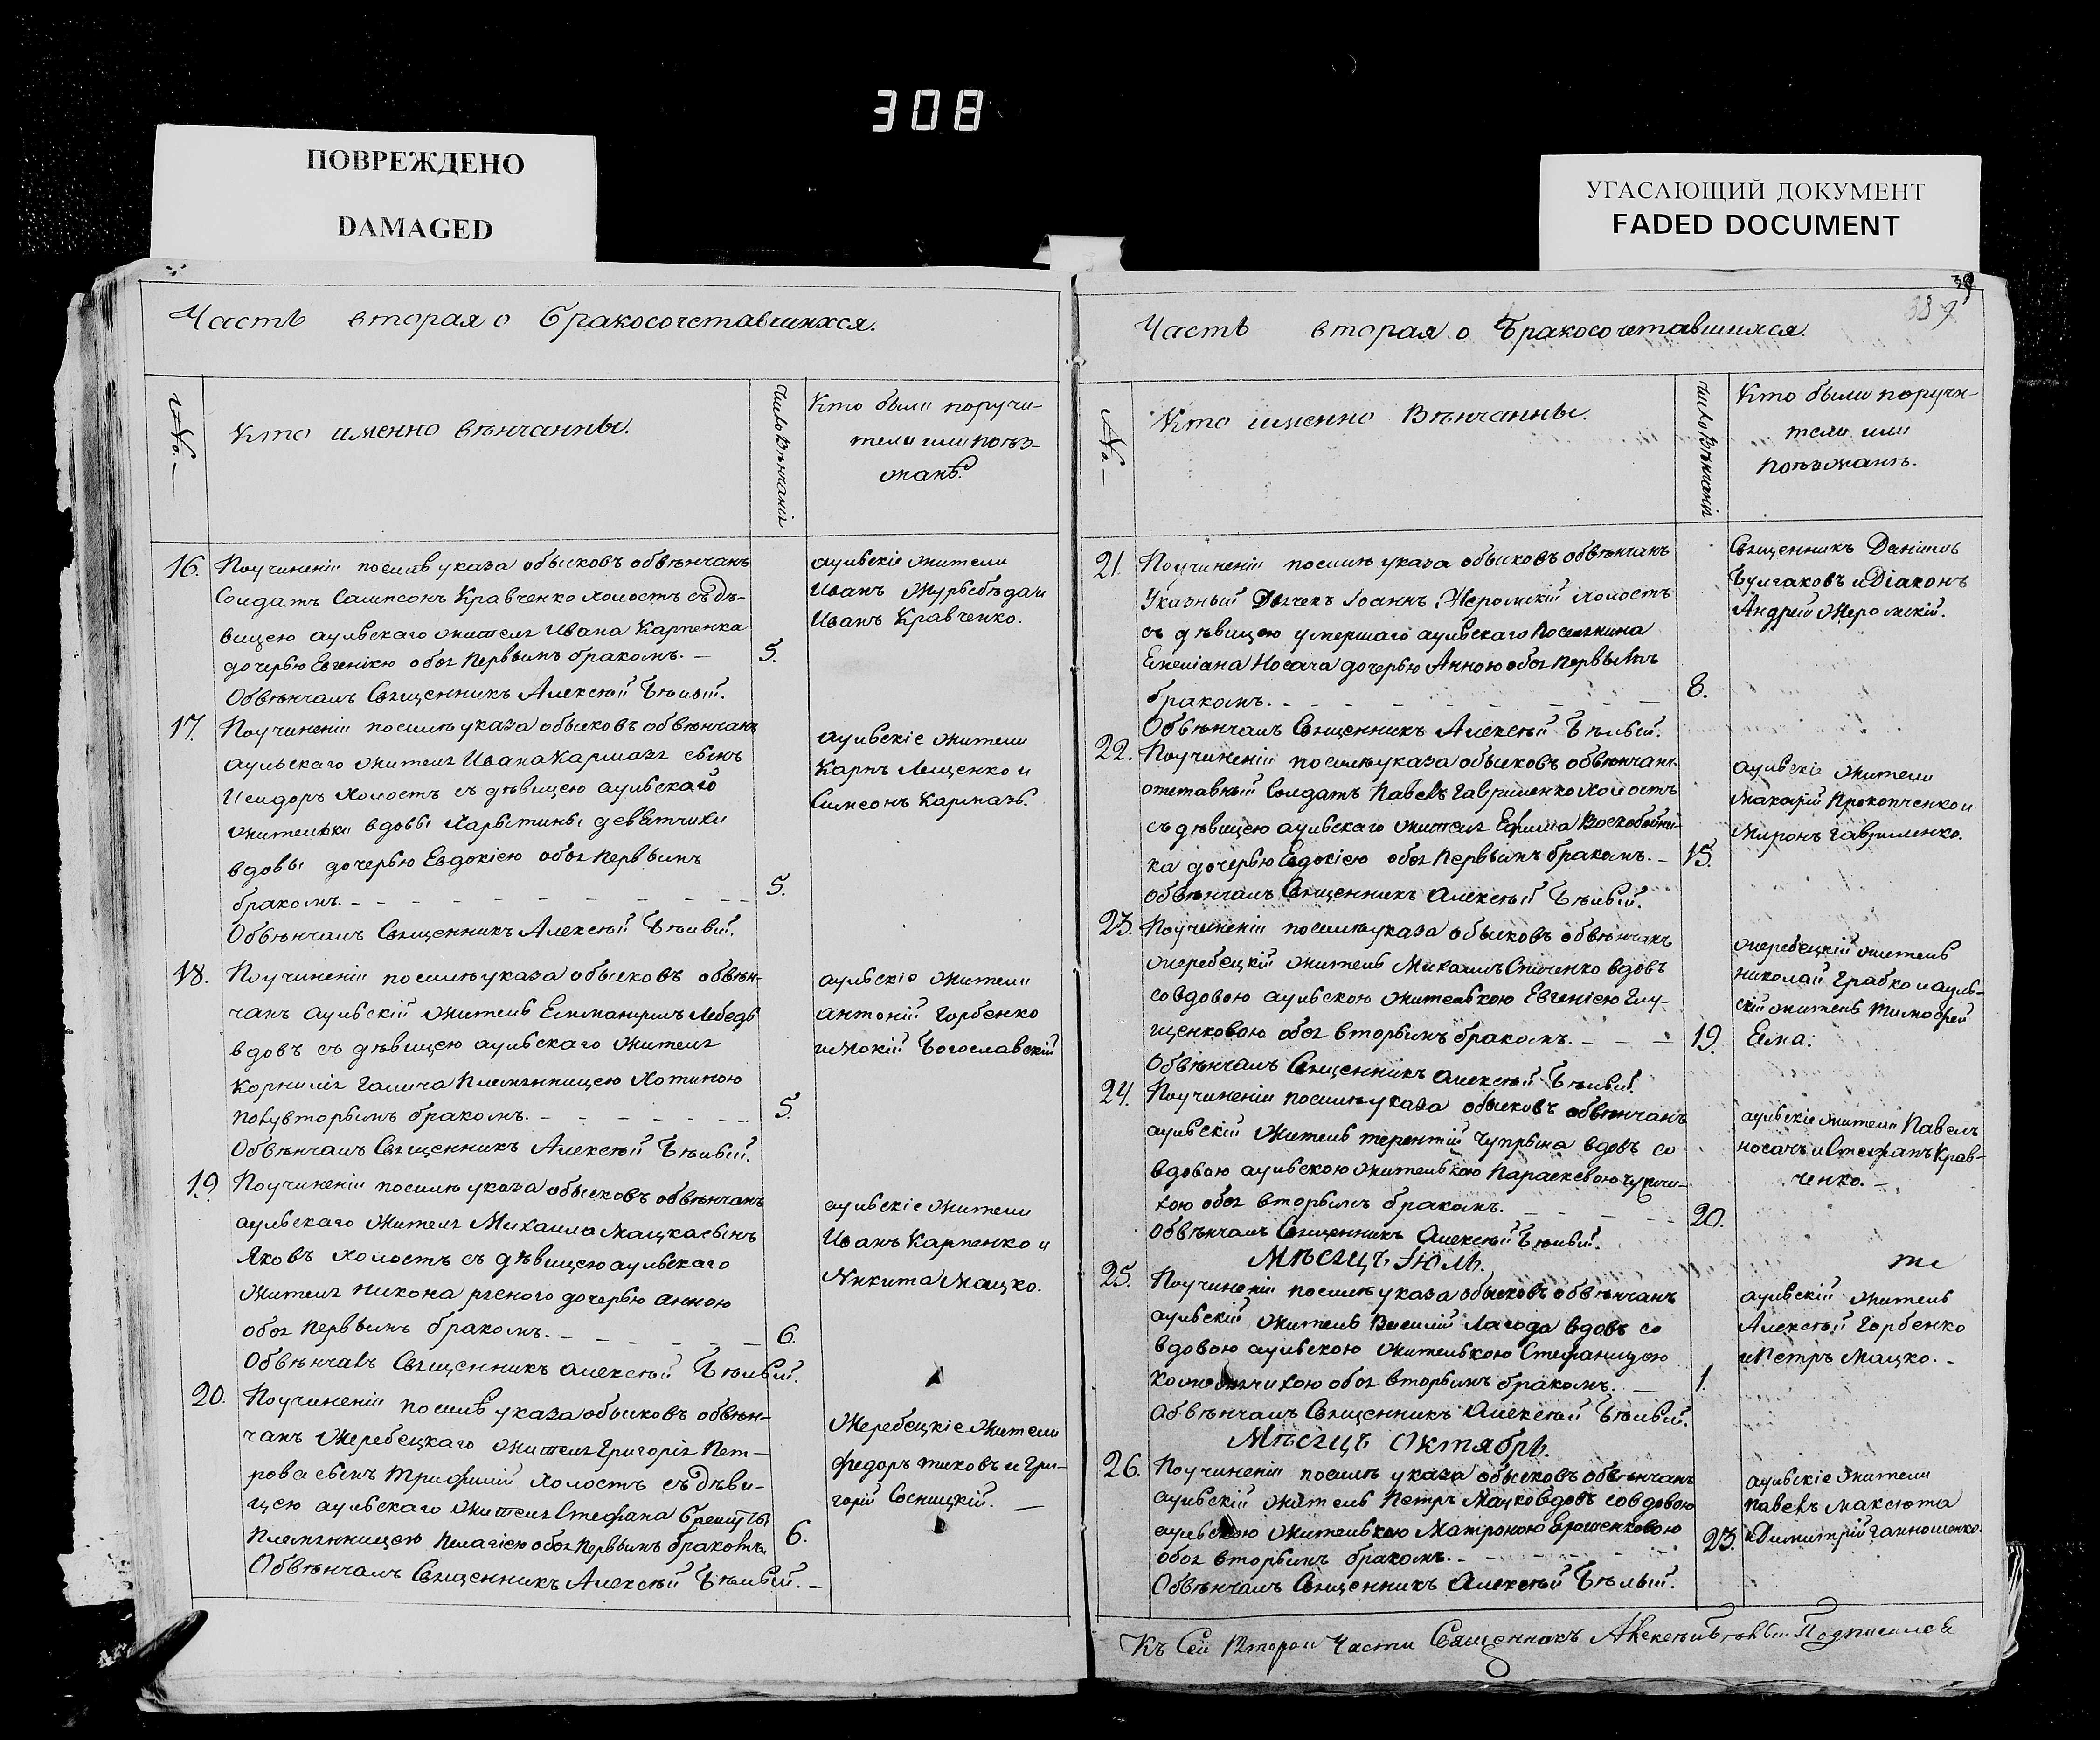 308
ПОВРЕЖДЕНО
DAMAGED
УГАСАЮЩИЙ ДОКУМЕНТ
FADED DOCUMENT
Часть вторая о бракосочетавшихся.
№.
Кто именно вѣнчанны.
Число Вѣнчанія
Кто были поручи-
тели или поѣз-
жанѣ.
16.
По учиненіи по силѣ указа обысковъ обвѣнчанъ
Солдатъ Сампсонъ Кравченко холостъ съ дѣ-
вицею аульскаго жителя Ивана Карпенка
дочерью Евгеніею обоя первымъ бракомъ. —
5.
Обвѣнчалъ Священникъ Алексѣй Бѣлый.
аульскіе жители
Иванъ и
Иванъ Кравченко.
17.
По учиненіи по силѣ указа обысковъ обвѣнчанъ
аульскаго жителя Ивана Кармазя сынъ
Исидоръ холостъ съ дѣвицею аульскаго
жительки вдовы Харытины
вдовы дочерью Евдокіею обоя первымъ
бракомъ. - - - - - - - - - -
5.
Обвѣнчалъ Священникъ Алексѣй Бѣлый.
аульскіе жители
Карпъ Лещенко и
Симсонъ Кармазь.
18.
По учиненіи по силѣ указа обысковъ обвѣн-
чанъ аульскій житель Лебедь
вдовъ съ дѣвицею аульскаго жителя
Корнилія Галича племянницею Хотиною
полувторымъ бракомъ. - - - - - -
5.
Обвѣнчалъ Священникъ Алексѣй Бѣлый.
аульскіе жители
антоній Горбенко
и Мокій Богославскій
19.
По учиненіи по силѣ указа обысковъ обвѣнчанъ
аульскаго жителя Михаила Мацка сынъ
Яковъ холостъ съ дѣвицею аульскаго
жителя никона дочерью анною
обоя первымъ бракомъ. - - - - - -
6.
Обвѣнчалъ Священникъ алексѣй Бѣлый.
аульскіе жители
Иванъ Карпенко и
Никита Мацко.
20.
По учиненіи по силѣ указа обысковъ обвѣн-
чанъ жеребецкаго жителя Григорія Пет-
рова сынъ Трифилій холостъ съ дѣви-
цею аульскаго жителя Стефана
племянницею Пелагіею обоя первымъ бракомъ.
6.
Обвѣнчалъ Священникъ Алексѣй Бѣлый. —
Жеребецкіе жители
федоръ тиховъ и Гри-
горій Сосницкій. —
39
Часть вторая о Бракосочетавшихся.
№.
Кто именно Вѣнчанны.
число Вѣнчанія
Кто были поручи-
тели или
поѣзжанѣ.
21.
По учиненіи по силѣ указа обысковъ обвѣнчанъ
Указный Дьячекъ Іоаннъ Жеромскій холостъ
съ дѣвицею умершаго аульскаго поселянина
Емеліана Носача дочерью Анною обоя первымъ
бракомъ. - - - - - - - - -
8.
Обвѣнчалъ Священникъ Алексѣй Бѣлый.
Священникъ Даніилъ
Булгаковъ и Діаконъ
Андрей Жеромскій.
22.
По учиненіи по силѣ указа обысковъ обвѣнчанъ
отставный Солдатъ Павелъ Гавриленко холостъ
съ дѣвицею аульскаго жителя Ефима Воскобойни-
ка дочерью Евдокіею обоя первымъ бракомъ. -
15.
обвѣнчалъ Священникъ алексѣй Бѣлый.
аульскіе жители
Макарій Прокопченко и
Миронъ Гавриленко.
23.
По учиненіи по силѣ указа обысковъ обвѣнчанъ
жеребецкій житель Михаилъ вдовъ
со вдовою аульскою жителькою Евгеніею Глу-
щенковою обоя вторымъ бракомъ. - - -
19.
Обвѣнчалъ Священникъ алексѣй Бѣлый.
жеребецкій житель
Николай Грабко и ауль-
скій житель Тимофей
24.
По учиненіи по силѣ указа обысковъ обвѣнчанъ
аульскій житель терентій Чупрына вдовъ со
вдовою аульскою жителькою Параскевою
кою обоя вторымъ бракомъ. - - - - -
20.
Обвѣнчалъ Священникъ Алексѣй Бѣлый.
аульскіе жители Павелъ
носачъ и Стефанъ Крав-
ченко. —
Мѣсяцъ Іюль.
25.
По учиненіи по силѣ указа обысковъ обвѣнчанъ
аульскій житель Василій Лагода вдовъ со
вдовою аульскою жителькою Стефанидою
обоя вторымъ бракомъ. —
1.
Обвѣнчалъ Священникъ Алексѣй Бѣлый.
аульскій житель
Алексѣй Горбенко
и Петръ Мацко. -
Мѣсяцъ Октябрь.
26.
По учиненіи по силѣ указа обысковъ обвѣнчанъ
аульскій житель Петръ Мацко вдовъ со вдовою
аульскою жителькою Матроною Ерошенковою
обоя вторымъ бракомъ. - - - - - -
23.
Обвѣнчалъ Священникъ Алексѣй Бѣлый.
аульскіе жители
Павелъ Максюта
и Димитрій
Къ Сей Второй Части Священникъ Алексѣй Бѣлый Подписался